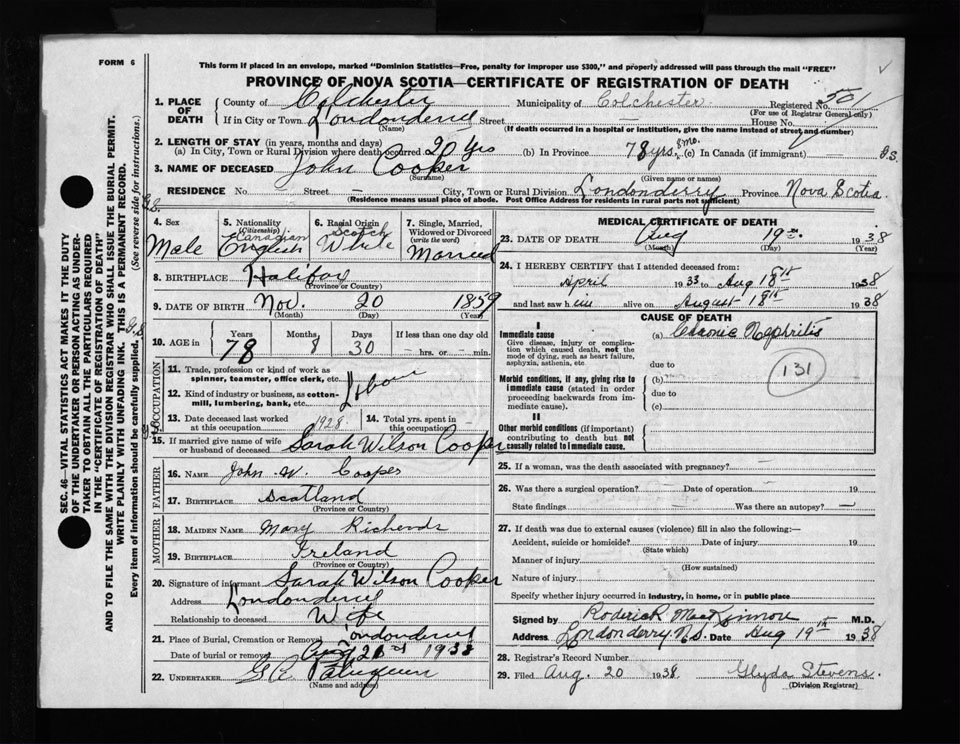 FORM 6
This form if placed in an envelope, marked "Dominion Statistics—Free, penalty for improper use $300," and properly addressed will pass through the mail "FREE"
PROVINCE OF NOVA SCOTIA—CERTIFICATE OF REGISTRATION OF DEATH
SEC. 46—VITAL STATISTICS ACT MAKES IT THE DUTY
OF THE UNDERTAKER OR PERSON ACTING AS UNDER-
TAKER TO OBTAIN ALL THE PARTICULARS REQUIRED
IN THE "CERTIFICATE OF REGISTRATION OF DEATH"
AND TO FILE THE SAME WITH THE DIVISION REGISTRAR WHO SHALL ISSUE THE BURIAL PERMIT.
WRITE PLAINLY WITH UNFADING INK. THIS IS A PERMANENT RECORD.
Every item of information should be carefully supplied. (See reverse side for instructions.)
1. PLACE OF DEATH County of Colchester Municipality of Colchester Registered No. 501
(For use of Registrar General only)
If in City or Town Londonderry Street — House No.
(Name) (If death occurred in a hospital or institution, give the name instead of street and number)
2. LENGTH OF STAY (in years, months and days)
(a) In City, Town or Rural Division where death occurred 20 yrs (b) In Province 78 yrs. 8 mo. (c) In Canada (if immigrant) — G.S.
3. NAME OF DECEASED John Cooper
(Surname) (Given name or names)
RESIDENCE No. Street — City, Town or Rural Division Londonderry Province Nova Scotia
(Residence means usual place of abode. Post Office Address for residents in rural parts not sufficient)
4. Sex Male
5. Nationality (Citizenship) Canadian English
6. Racial Origin Scotch White
7. Single, Married, Widowed or Divorced (write the word) Married
8. BIRTHPLACE Halifax
(Province or Country)
9. DATE OF BIRTH Nov. 20 1859
(Month) (Day) (Year)
10. AGE in Years 78 Months 8 Days 30 If less than one day old — hrs. or — min.
OCCUPATION
11. Trade, profession or kind of work as
spinner, teamster, office clerk, etc.
12. Kind of industry or business, as cotton-
mill, lumbering, bank, etc.
13. Date deceased last worked at this occupation 1928
14. Total yrs. spent in this occupation —
15. If married give name of wife
or husband of deceased Sarah Wilson Cooper
FATHER
16. NAME John W. Cooper
17. BIRTHPLACE Scotland
(Province or Country)
MOTHER
18. MAIDEN NAME Mary Richards
19. BIRTHPLACE Ireland
(Province or Country)
20. Signature of informant Sarah Wilson Cooper
Address Londonderry
Relationship to deceased Wife
21. Place of Burial, Cremation or Removal Londonderry
Date of burial or removal Aug 21st 1938
22. UNDERTAKER
(Name and address)
MEDICAL CERTIFICATE OF DEATH
23. DATE OF DEATH Aug 19 1938
(Month) (Day) (Year)
24. I HEREBY CERTIFY that I attended deceased from:
April 1933 to Aug 18th 1938
and last saw him alive on August 18th 1938
CAUSE OF DEATH
I
Immediate cause
Give disease, injury or complica-
tion which caused death, not the
mode of dying, such as heart failure,
asphyxia, asthenia, etc.
(a) Chronic Nephritis
due to
131
Morbid conditions, if any, giving rise to
immediate cause (stated in order
proceeding backwards from im-
mediate cause).
(b)
due to
(c)
II
Other morbid conditions (if important)
contributing to death but not
causally related to immediate cause.
25. If a woman, was the death associated with pregnancy? —
26. Was there a surgical operation? — Date of operation — 19
State findings Was there an autopsy? —
27. If death was due to external causes (violence) fill in also the following:—
Accident, suicide or homicide? Date of injury 19
(State which)
Manner of injury
(How sustained)
Nature of injury
Specify whether injury occurred in industry, in home, or in public place
Signed by Roderick MacKinnon M.D.
Address Londonderry N.S. Date Aug 19th 1938
28. Registrar's Record Number
29. Filed Aug. 20 1938 Glyda Stevens
(Division Registrar)